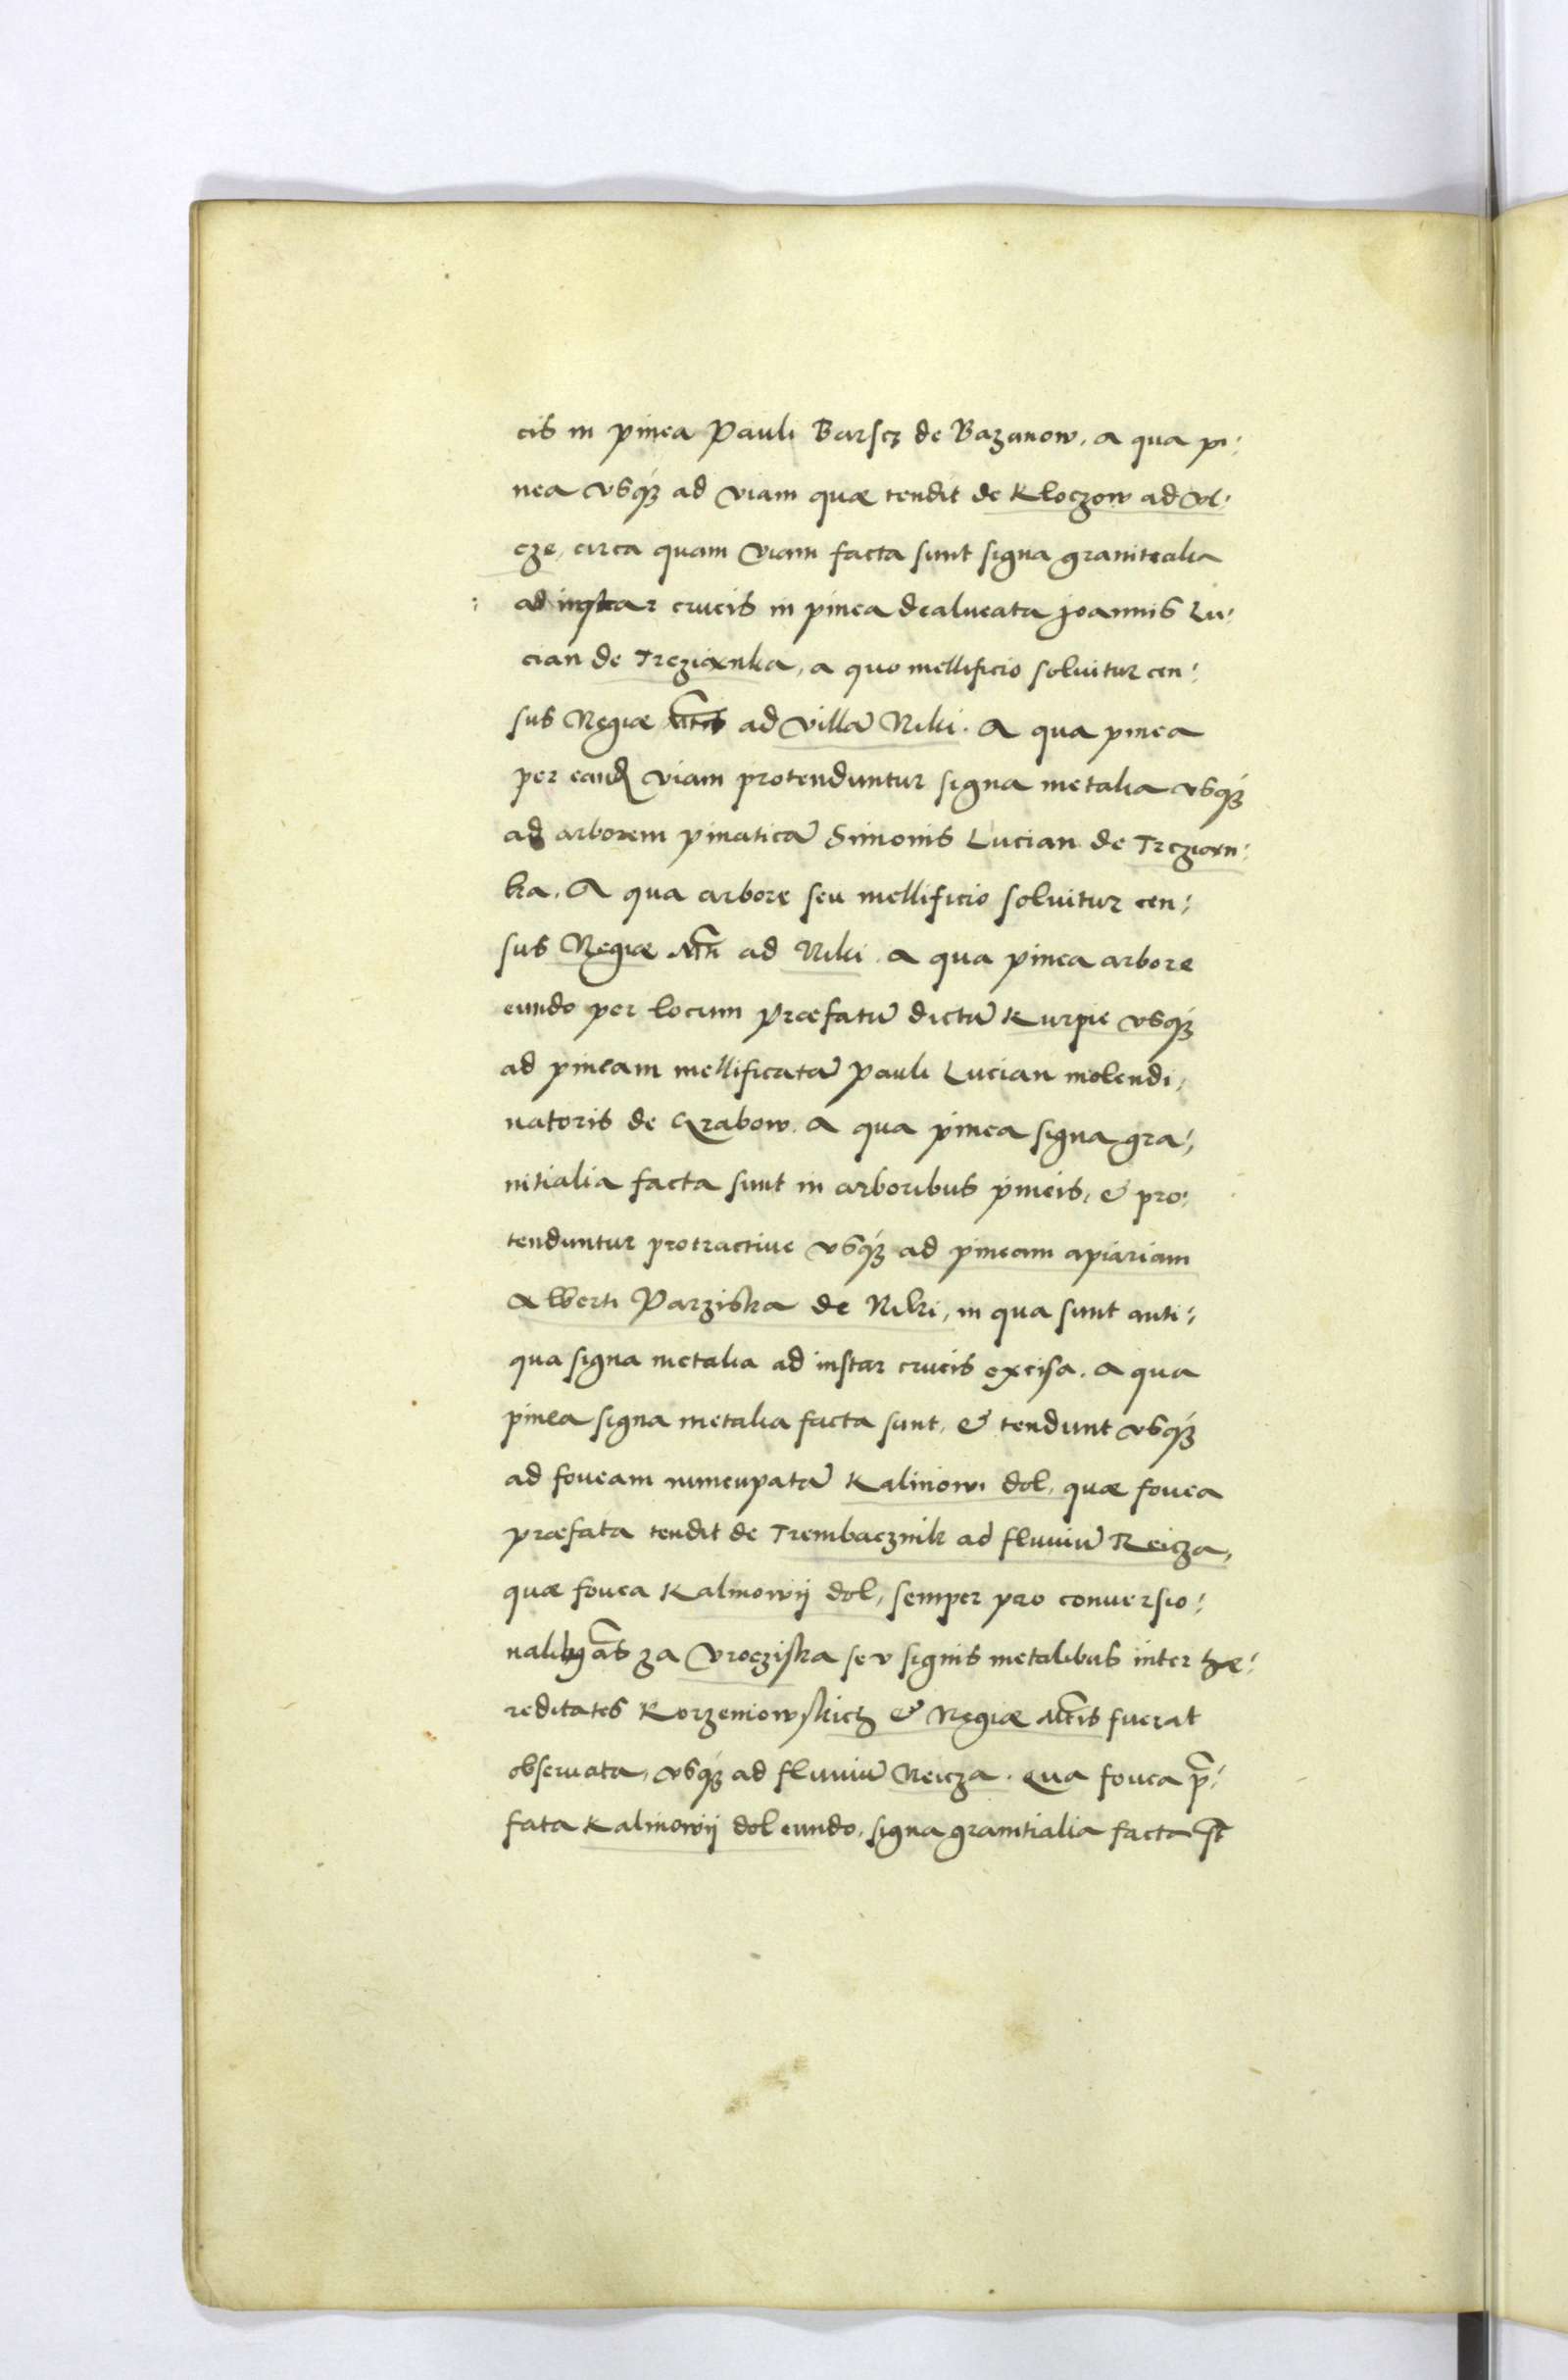 cis in pinea Pauli Barscz de Bazanow, a qua pi:
nea vsq́ꝫ ad viam quæ tendit de Kloczow ad Vl:
cze, circa quam viam facta sunt signa granitealia
ad instar crucis in pinea dealueata Joannis Lu:
cian de Trczianka, a quo mellificio soluitur cen:
sus Regiæ ad villā Niki. A qua pinea
per eandꝫ viam protenduntur signa metalia vsq́ꝫ
ad arborem pinaticā Simonis Lucian de Trczian:
ka. A qua arbore seu mellificio soluitur cen:
sus Regiæ Mtis ad Niki. a qua pinea arbore
eundo per locum præfatū dictū Kurpie vsq́ꝫ
ad pineam mellificatā Pauli Lucian molendi:
natoris de Grabow. A qua pinea signa gra:
nitialia facta sunt in arboribus pineis, & pro:
tenduntur protractiue vsq́ꝫ ad pineam apiariam
Alberti Parziska de Niki, in qua sunt anti:
qua signa metalia ad instar crucis excisa. A qua
pinea signa metalia facta sunt, & tendunt vsq́ꝫ
ad foueam nuncupatā Kalinowi dol, quæ fouea
præfata tendit de Trembacznik ad fluuiū Reicza,
quæ fouea Kalinowij dol, semper pro conuersio:
nalibꝫ als za Vrocziska seu signis metalibus inter hæ:
reditates Korzeniowskich & Regiæ Mtis fuerat
obseruata, vsq́ꝫ ad fluuiū Reicza. Qua fouea p̄:
fata Kalinowij dol eundo, signa granitialia facta st̄